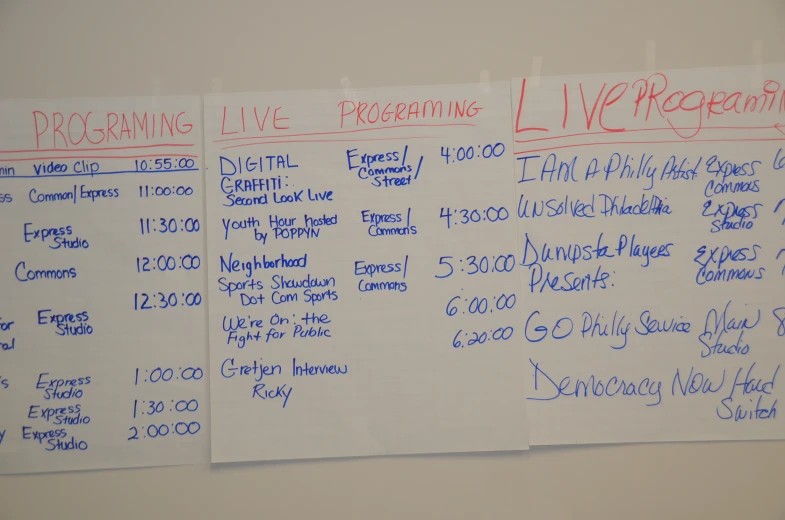 PROGRAMING
min Video Clip 10:55:00
ss Common/Express 11:00:00
Express 11:30:00
Studio
Commons 12:00:00
12:30:00
or Express
al Studio
s Express 1:00:00
Studio
Express 1:30:00
Studio
y Express 2:00:00
Studio
LIVE PROGRAMING
DIGITAL Express/ 4:00:00
GRAFFITI: Commons/
Second Look Live Street
Youth Hour hosted Express/ 4:30:00
by POPPYN Commons
Neighborhood Express/ 5:30:00
Sports Showdown Commons
Dot Com Sports
We're On: the 6:00:00
Fight for Public 6:20:00
Gretjen Interview
Ricky
LIVE PROgRamin
I AM A Philly Artist Express 6
Commons
UNSolved Philadelphia Express
Studio
Dumpsta Players Express
Presents: Commons
GO Philly Service Main 8
Studio
Democracy Now Hard
Switch